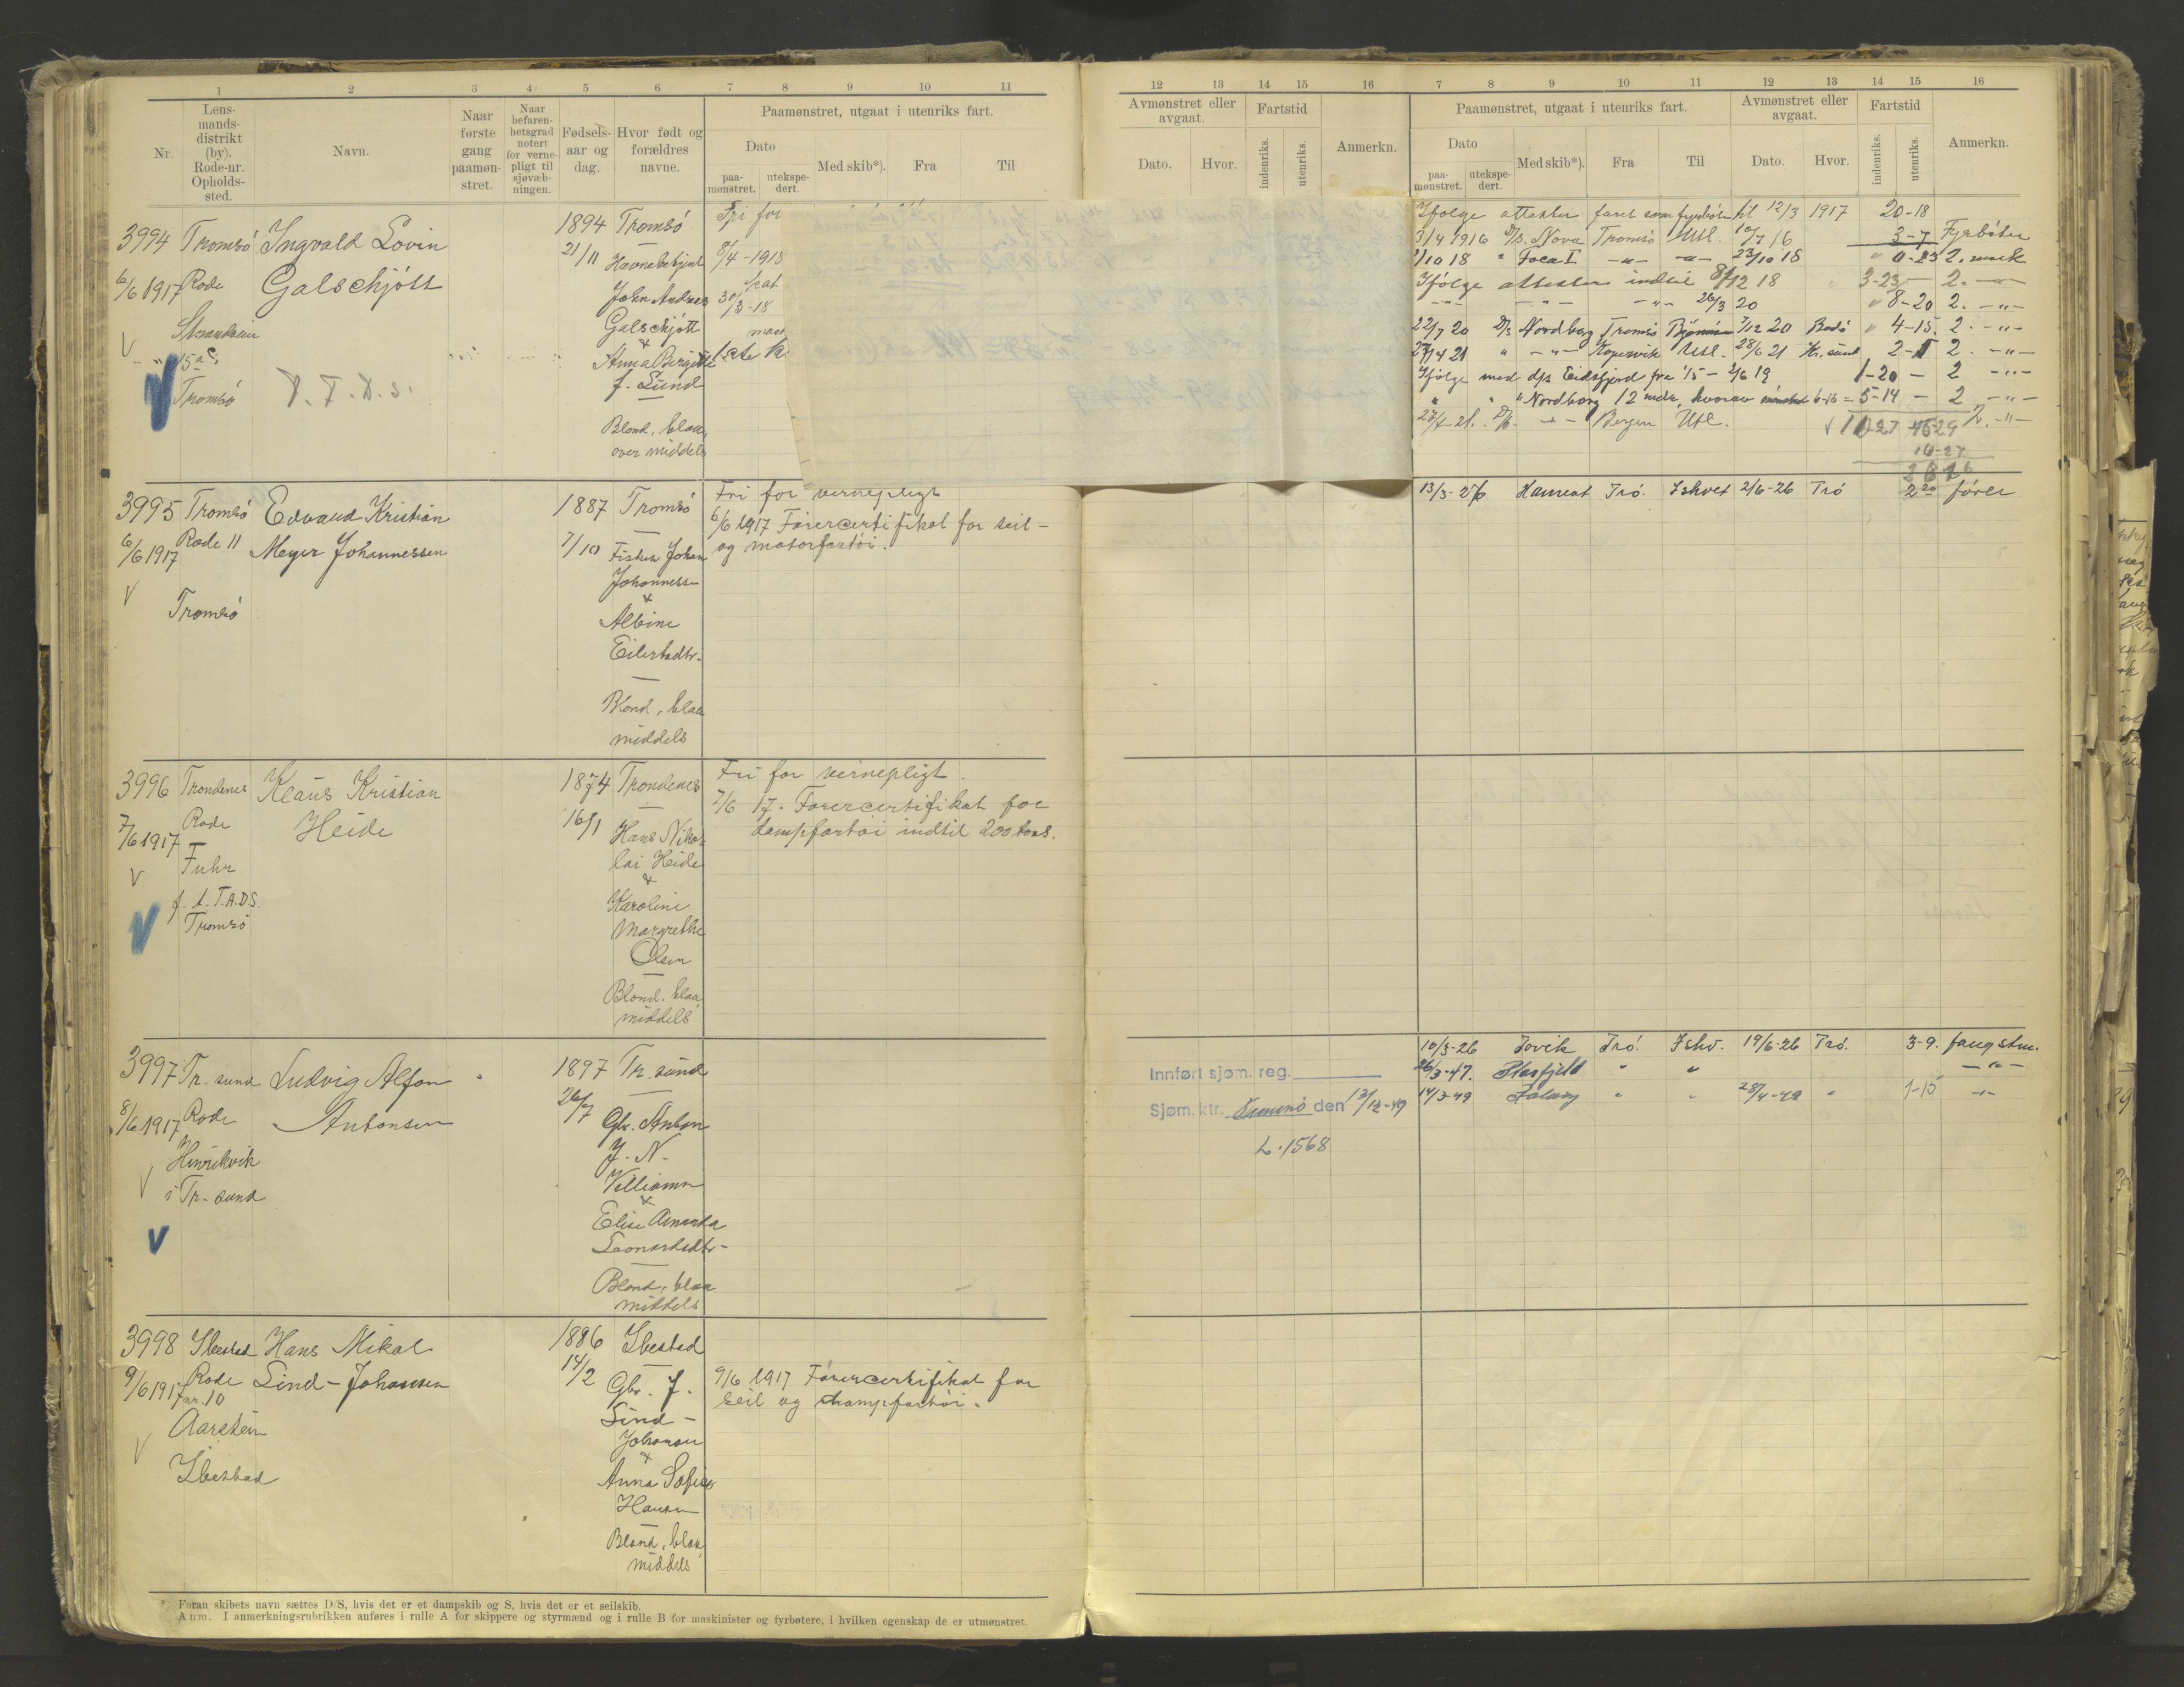 1 2 3 4 5 6 7 8 9 10 11
Nr.
Lens-
mands-
distrikt
(by).
Rode-nr.
Opholds-
sted.
Navn.
Naar
første
gang
paamøn-
stret.
Naar
befaren-
hetsgrad
notert
for verne-
pligt til
sjøvæb-
ningen.
Fødsels-
aar og
dag.
Hvor født og
forældres
navne.
Paamønstret, utgaat i utenriks fart.
Dato
paa-
mønstret.
utekspe-
dert.
Med skib*).
Fra
Til
12 13 14 15 16 7 8 9 10 11 12 13 14 15 16
Avmønstret eller
avgaat.
Dato.
Hvor.
Fartstid
indenriks.
utenriks.
Anmerkn.
Paamønstret, utgaat i utenriks fart.
Dato
paa-
mønstret.
utekspe-
dert.
Med skib*).
Fra
Til
Avmønstret eller
avgaat.
Dato.
Hvor.
Fartstid
indenriks.
utenriks.
Anmerkn.
3994
6/6 1917
V
Tromsö
Rode
Strandvein
Tromsö
Ingvald Lovin
Galschjött
D.T.D.S.
1894
21/11
Tromsö
Havnebetjent
John Andreas
Galschjött
&
Anna Bergitte
f. Lund
Blond, blaa,
over middels
Fri for
8/4 - 1918
30/3-18
Ifölge attester faret som fyrböter til 12/3 1917 20-18
3/4 1916 D/S. Nova Tromsö Utl. 10/7 16 3-7 Fyrböter
/10 18 " Foca I -"- -"- 23/10 18 " 0-23 2. mask
Ifölge attester indtil 8/12 18 3-23 2. -"-
-"- -"- -"- 26/3 20 " 8-20 2. -"-
22/7 20 D/S Nordborg Tromsö 7/12 20 Bodö " 4-15. 2. -"-
27/4 21 " -"- Kopervik Utl. 28/6 21 Kr. sund 2-1 2. -"-
Ifölge med d/s Eidsfjord fra 1/5 - 2/6 19 1-20 - 2 -"-
" " "Nordborg 12 mdr, hvorav 6-16 = 5-14 - 2 -"-
D/S -"- Bergen Utl. 2. -"-
3995
6/6 1917
V
Tromsö
Rode 11
Tromsö
Edvard Kristian
Meyer Johannessen
1887
7/10
Tromsö
Fisker Johan
Johannessen
&
Albine
Eilertsdtr.
Blond, blaa
middels
Fri for vernepligt
6/6 1917 Förercertifikat for seil-
og motorfartöi.
13/3-26 Trö. Ishvet 2/6-26 Trö 2 20 förer
3996
7/6 1917
V
Trondenes
Rode
Fuhr
f. t. T.A.D.S.
Tromsö
Klaus Kristian
Heide
1874
16/1
Trondenes
Hans Niko-
lai Heide
&
Karoline
Margrethe
Olsen
Blond. blaa,
middels
Fri for vernepligt.
7/6 17. Förercertifikat for
dampfartöi indtil 200 tons.
3997
8/6 1917
V
Tr. sund
Rode
Hinrikvik
i Tr. sund
Ludvig Alfon
Antonsen
1897
26/7
Tr. sund
Gbr. Anton
J. N.
Villiamn
&
Elise Amanda
Leonardsdtr-
Blond, blaa
middels
Innført sjøm. reg.
Sjøm.ktr. Tromsö den 13/12-49
L. 1568
10/3-26 Jovik Trö. Ishv. 19/6-26 Trö. 3-9. fangstm.
26/3-47. Blaafjell " " -"-
14/3-49 " " 28/4-49 " 1-15 -"-
3998
9/6 1917
V
Ibestad
Rode
nr. 10
Aarstein
Ibestad
Hans Mikal
Lind-Johansen
1886
14/2
Ibestad
Gbr. J.
Lind-
Johansen
&
Anna Sofie
Hansen
Blond, blaa,
middels
9/6 1917 Förercertifikat for
seil og dampfartöi.
*) Foran skibets navn sættes D/S, hvis det er et dampskib og S, hvis det er et seilskib.
Anm. I anmerkningsrubrikken anføres i rulle A for skippere og styrmænd og i rulle B for maskinister og fyrbøtere, i hvilken egenskap de er utmønstret.